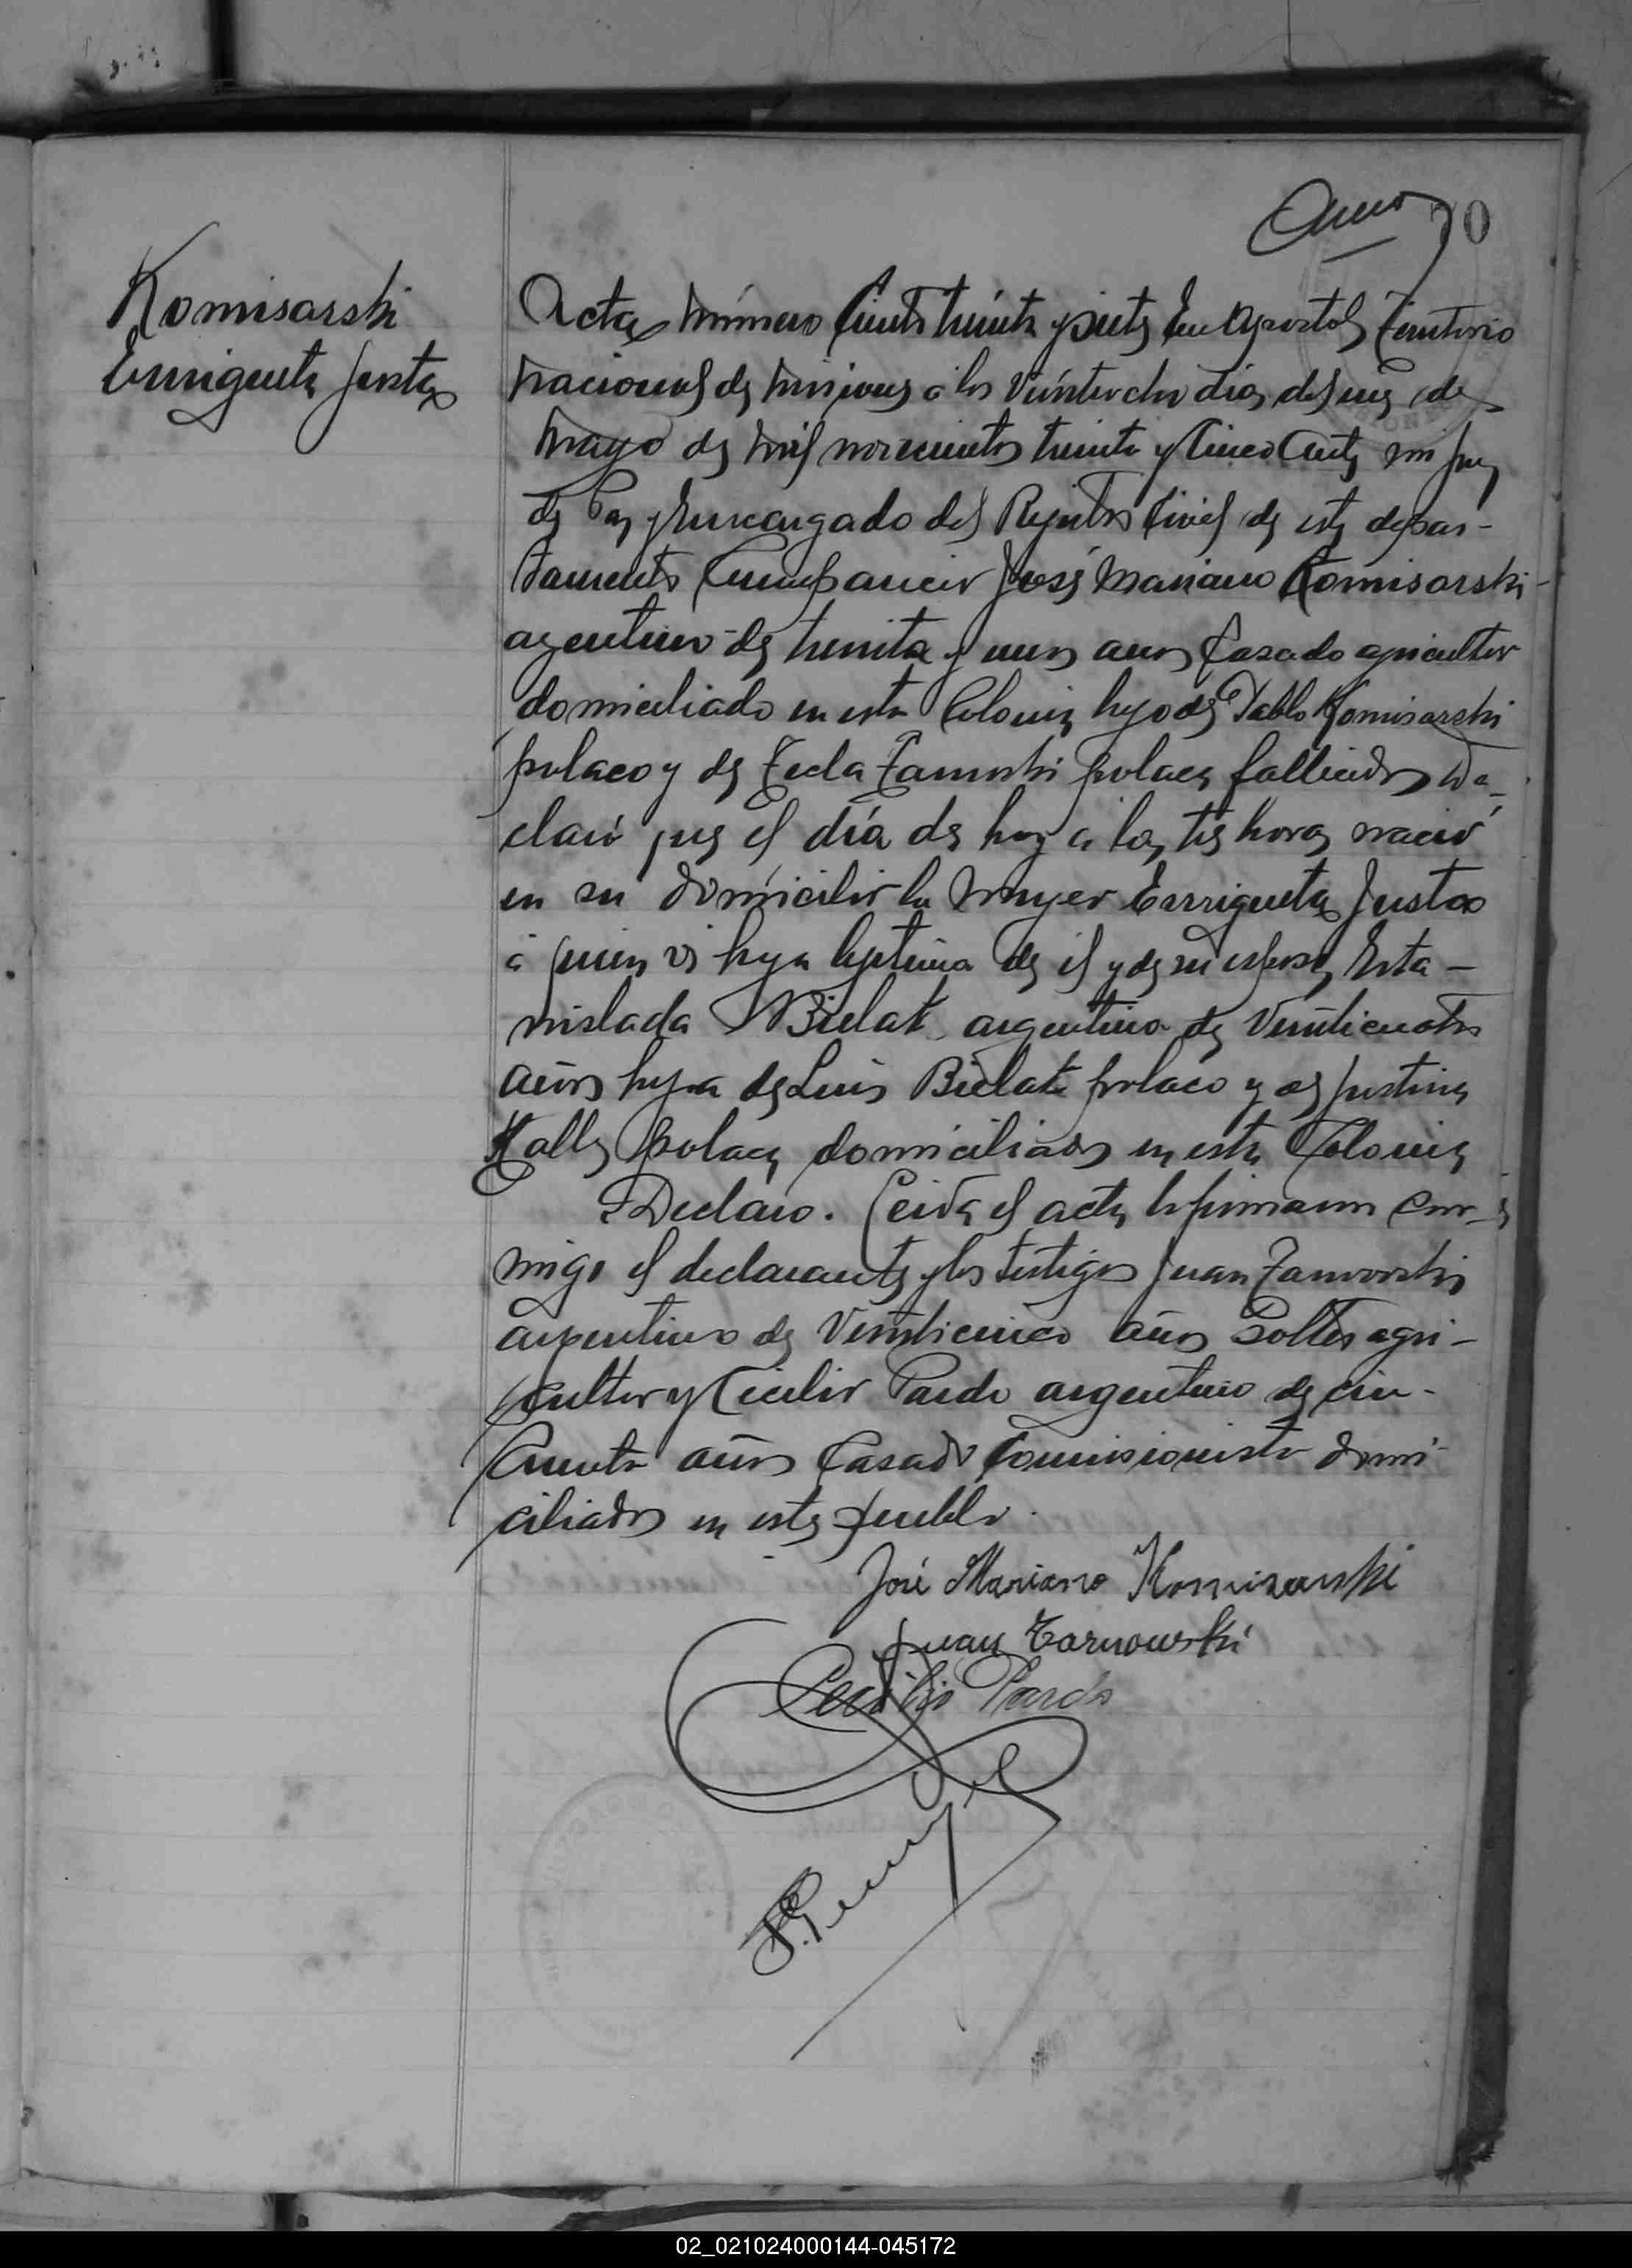 70
Komisarski
Enrigueta Justa
Acta número Ciento treinta y siete En Apostoles Territorio
nacional de Misiones a los Veintiocho dias del mes de
Mayo de mil novecientos treinta y Cinco Ante mi Juez
de Paz y Encargado del Registro Civil de este depar-
tamento Compareció José Mariano Komisarski-
argentino de treinta y un años Casado agricultor
domiciliado en esta Colonia hijo de Pablo Komisarski
polaco y de Tecla Tarnoski polaca fallecidos De-
claró que el día de hoy a las tres horas nació
en su domicilio la mujer Enrigueta Justa
a quien vi hija legitima de él y de su esposa Esta-
nislada Bielat argentina de Veinticuatro
años hija de Luis Bielat polaco y de Justina
Halla polaca domiciliados en esta Colonia
Declaro. Leida el acta la firmaron con-
migo el declarante y los testigos Juan Tarnowski
argentino de Veinticinco años Soltero agri-
cultor y Cecilio Pardo argentino de cin-
cuenta años Casado Comisionista domi-
ciliados en este pueblo.
José Mariano Komisarski
Juan Tarnowski
Cecilio Pardo
02_021024000144-045172